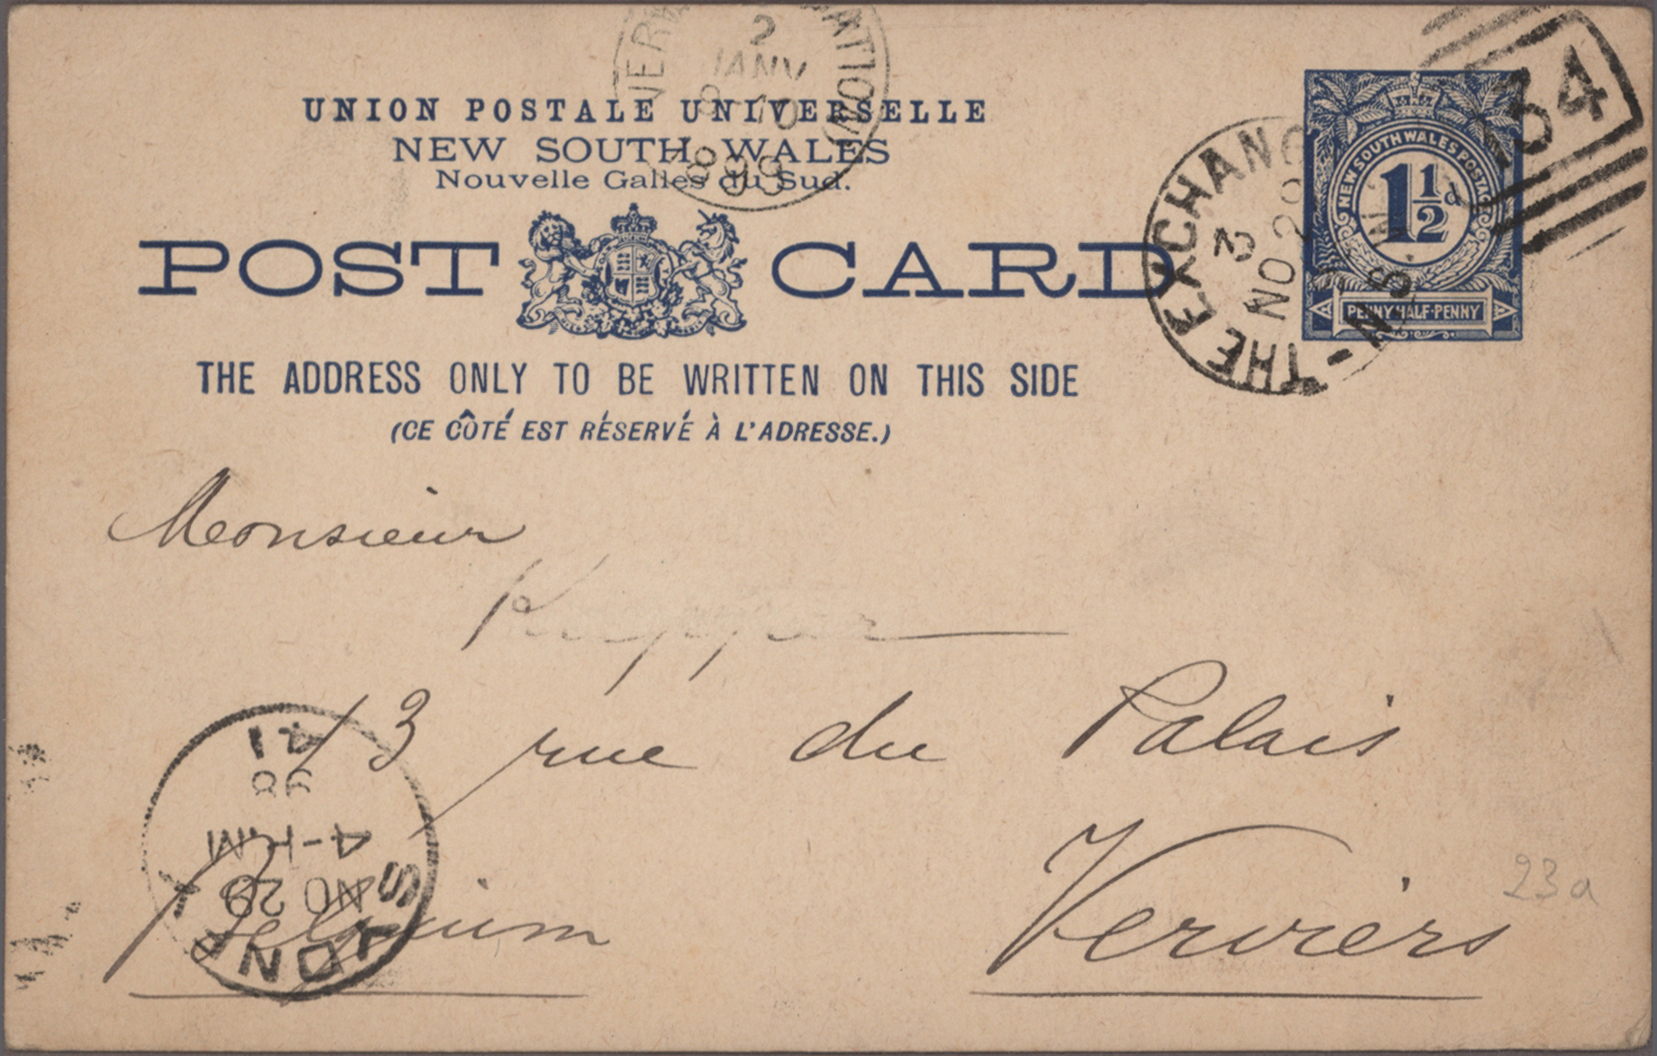 UNION POSTALE UNIVERSELLE
NEW SOUTH WALES
Nouvelle Galles du Sud.
POST CARD
THE ADDRESS ONLY TO BE WRITTEN ON THIS SIDE
(CE CÔTÉ EST RÉSERVÉ À L'ADRESSE.)
NEW SOUTH WALES POSTAGE
1½d
PENNY HALF-PENNY
2
JANV
1899
134
THE EXCHANG
2
NO 29
N.S.
Monsieur
13 rue du Palais
Verviers
Belgium
SYDNEY
NO 29
4-PM
98
21
23a